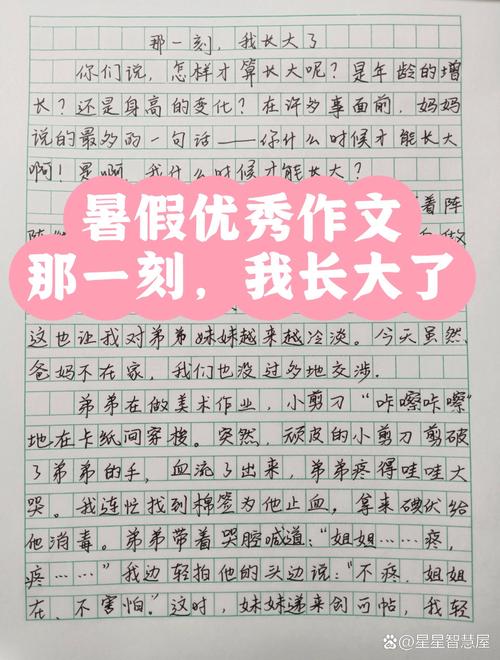 那一刻，我长大了
你们说，怎样才算长大呢？是年龄的增
长？还是身高的变化？在许多事面前，妈妈
说的最多的一句话——你什么时候才能长大
啊！是啊，我什么时候才能长大？
着阵
暑假优秀作文
那一刻，我长大了
这也让我对弟弟妹妹越来越冷淡。今天虽然
爸妈不在家，我们也没过多地交涉.
弟弟在做美术作业，小剪刀“咔嚓咔嚓”
地在卡纸间穿梭。突然，顽皮的小剪刀剪破
了弟弟的手，血流了出来，弟弟疼得哇哇大
哭。我连忙找到棉签为他止血，拿来碘伏给
他消毒。弟弟带着哭腔喊道：“姐姐……疼，
疼……”我边轻拍他的头边说：“不疼，姐姐
在，不害怕。”这时，妹妹递来创可帖，我轻
@星星智慧屋